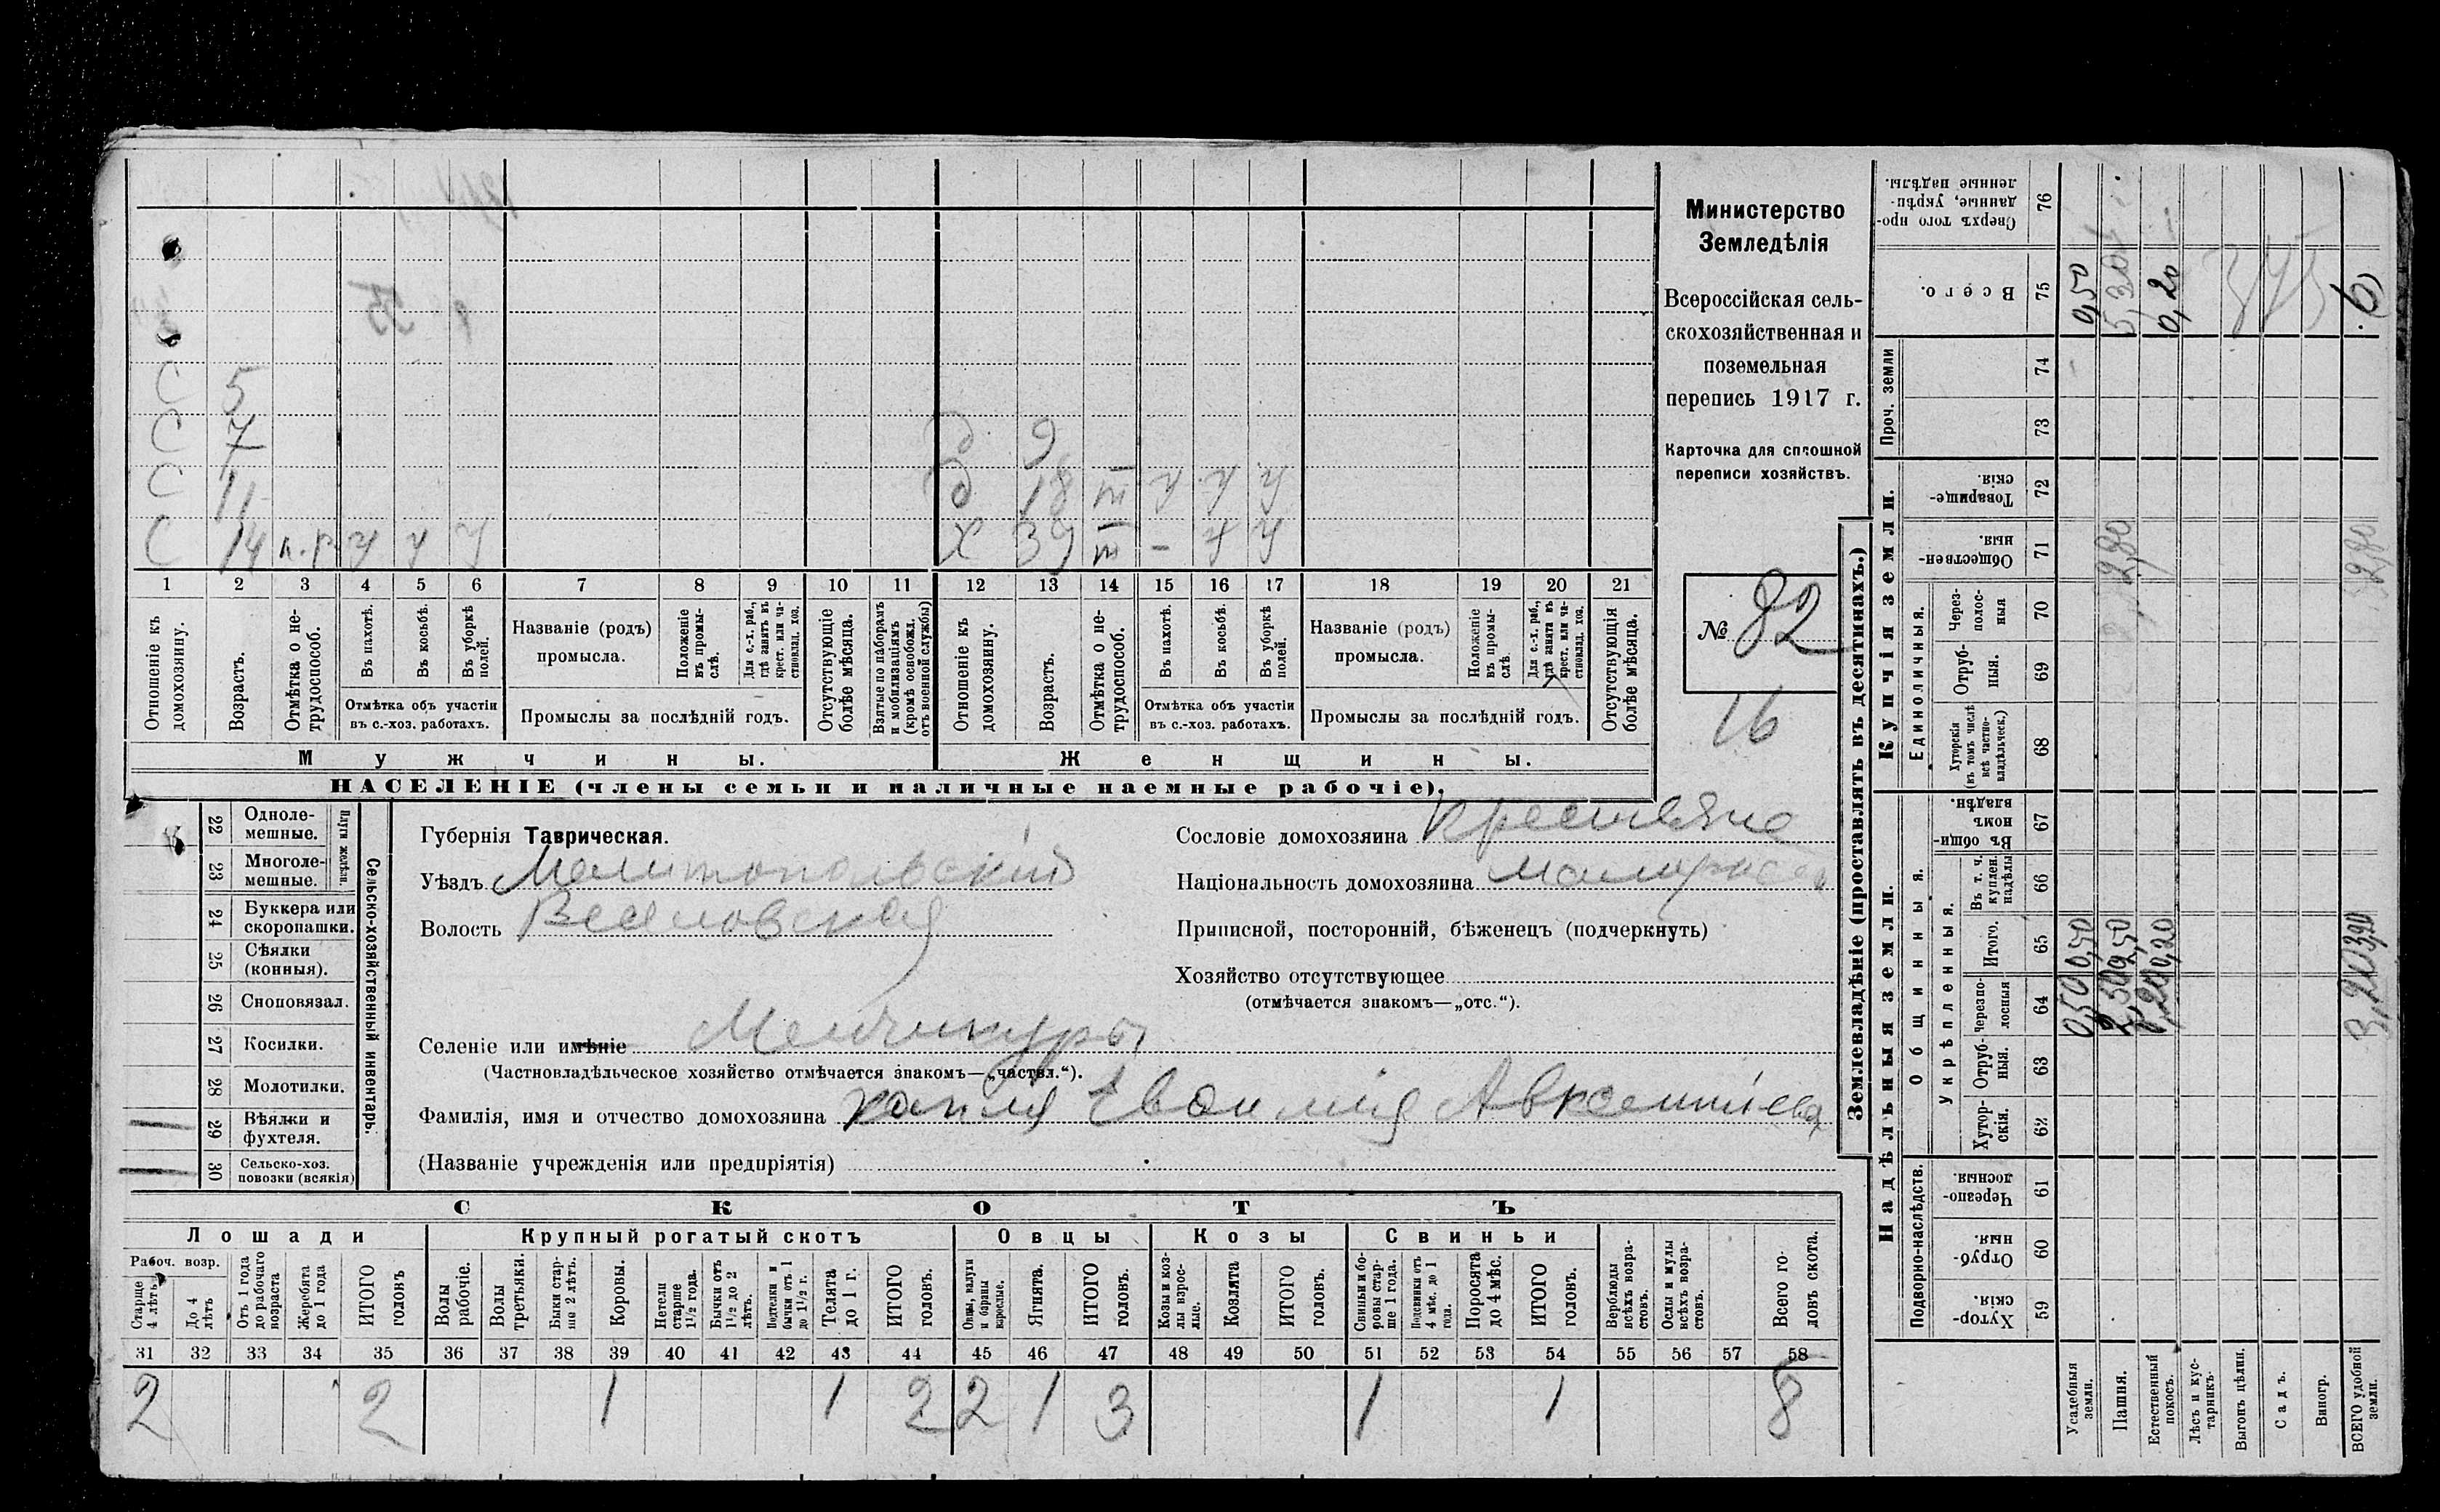 С 5
С 7 д 9
С 11 д 18 ш ч ч ч
С 14 п.р. ч ч ч Х 39 ш - ч ч
1 2 3 4 5 6 7 8 9 10 11 12 13 14 15 16 17 18 19 20 21
Отношеніе къ домохозяину.
Возрастъ.
Отмѣтка о нетрудоспособ.
Въ пахотѣ.
Въ косьбѣ.
Въ уборкѣ полей.
Отмѣтка объ участіи
въ с.-хоз. работахъ.
Названіе (родъ)
промысла.
Положеніе въ промы-слѣ.
Для с.-х. раб., гдѣ занятъ въ крест. или ча-стновлад. хоз.
Промыслы за послѣдній годъ.
Отсутствующіе болѣе мѣсяца.
Взятые по наборамъ и мобилизаціямъ (кромѣ освобожд. отъ военной службы)
Отношеніе къ домохозяину.
Возрастъ.
Отмѣтка о не-трудоспособ.
Въ пахотѣ.
Въ косьбѣ.
Въ уборкѣ полей.
Отмѣтка объ участіи
въ с.-хоз. работахъ.
Названіе (родъ)
промысла.
Положеніе въ промы-слѣ.
Для с.-х. раб., гдѣ занята въ крест. или ча-стновлад. хоз.
Промыслы за послѣдній годъ.
Отсутствующія болѣе мѣсяца.
Мужчины.
Женщины.
НАСЕЛЕНІЕ (члены семьи и наличные наемные рабочіе).
Министерство
Земледѣлія
Всероссійская сель-
скохозяйственная и
поземельная
перепись 1917 г.
Карточка для сплошной
переписи хозяйствъ.
№ 82
16
22 Одноле-мешные.
23 Многоле-мешные.
Плуги желѣзн.
24 Буккера или скоропашки.
25 Сѣялки (конныя).
26 Сноповязал.
27 Косилки.
28 Молотилки.
29 Вѣялки и фухтеля.
30 Сельско-хоз. повозки (всякія)
Сельско-хозяйственный инвентарь.
Губернія Таврическая.
Уѣздъ Мелитопольскій
Волость Веселовская
Селеніе или имѣніе Менчикуры
(Частновладѣльческое хозяйство отмѣчается знакомъ—„частвл.“).
Фамилія, имя и отчество домохозяина Хапля Евфимія Авксентіева
(Названіе учрежденія или предпріятія)
Сословіе домохозяина Крестьяне
Національность домохозяина Малорос
Приписной, посторонній, бѣженецъ (подчеркнуть)
Хозяйство отсутствующее
(отмѣчается знакомъ—„отс.“).
СКОТЪ
Лошади
Крупный рогатый скотъ
Овцы
Козы
Свиньи
Рабоч. возр.
Старше 4 лѣтъ
До 4 лѣтъ
Отъ 1 года до рабочаго возраста
Жеребята до 1 года
ИТОГО головъ
Волы рабочіе.
Волы третьяки.
Быки стар-ше 2 лѣтъ.
Коровы.
Нетели старше 1½ года.
Бычки отъ 1½ до 2 лѣтъ.
Подтелки и бычки отъ 1 до 1½ г.
Телята до 1 г.
ИТОГО головъ.
Овцы, валухи и бараны взрослые.
Ягнята.
ИТОГО головъ.
Козы и коз-лы взрос-лые.
Козлята
ИТОГО головъ.
Свиньи и бо-ровы стар-ше 1 года.
Подсвинки отъ 4 мѣс. до 1 года.
Поросята до 4 мѣс.
ИТОГО головъ.
Верблюды всѣхъ возра-стовъ.
Ослы и мулы всѣхъ возра-стовъ.
Всего го-ловъ скота.
31 32 33 34 35 36 37 38 39 40 41 42 43 44 45 46 47 48 49 50 51 52 53 54 55 56 57 58
2 2 1 1 2 2 1 3 1 1 8
Землевладѣніе (проставлять въ десятинахъ.)
Надѣльныя земли.
Купчія земли.
Проч. земли
Подворно-наслѣдств.
Общинныя.
Укрѣпленныя.
Единоличныя.
Сверхъ того про-данные, укрѣп-ленные надѣлы. 76
Всего. 75 0,50 5,30 0,20 6
74
73
Товарище-скія. 72
Обществен-ныя. 71 2,80 2,80
Через-полос-ныя 70
Отруб-ныя. 69
Хуторскія (въ томъ числѣ всѣ частно-владѣльческ.) 68
Въ общин-номъ владѣн. 67
Въ т. ч. куплен. надѣлы 66
Итого. 65 0,50 2,50 0,20 3,20
Черезпо-лосныя 64 0,50 2,50 0,20 3,20
Отруб-ныя. 63
Хутор-скія. 62
Черезпо-лосныя. 61
Отруб-ныя. 60
Хутор-скія. 59
Усадебныя земли.
Пашня.
Естественный покосъ.
Лѣсъ и кус-тарникъ.
Выгонъ цѣлин.
Садъ.
Виногр.
ВСЕГО удобной земли.